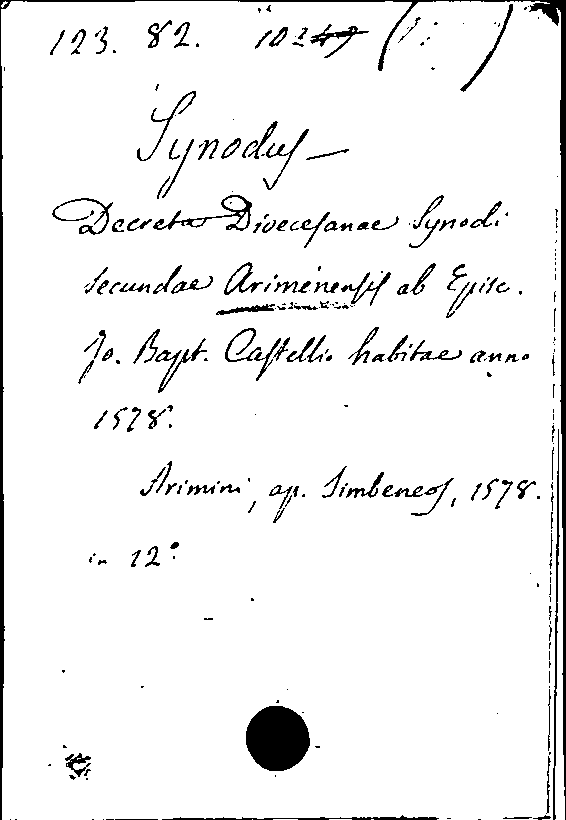 123. 82.
Synodus —
Decreta Dioecesanae Synodi
secundae Ariminensis ab Episc.
Jo. Bapt. Castellio habitae anno
1578.
Arimini, ap. Simbeneos, 1578.
in 12°